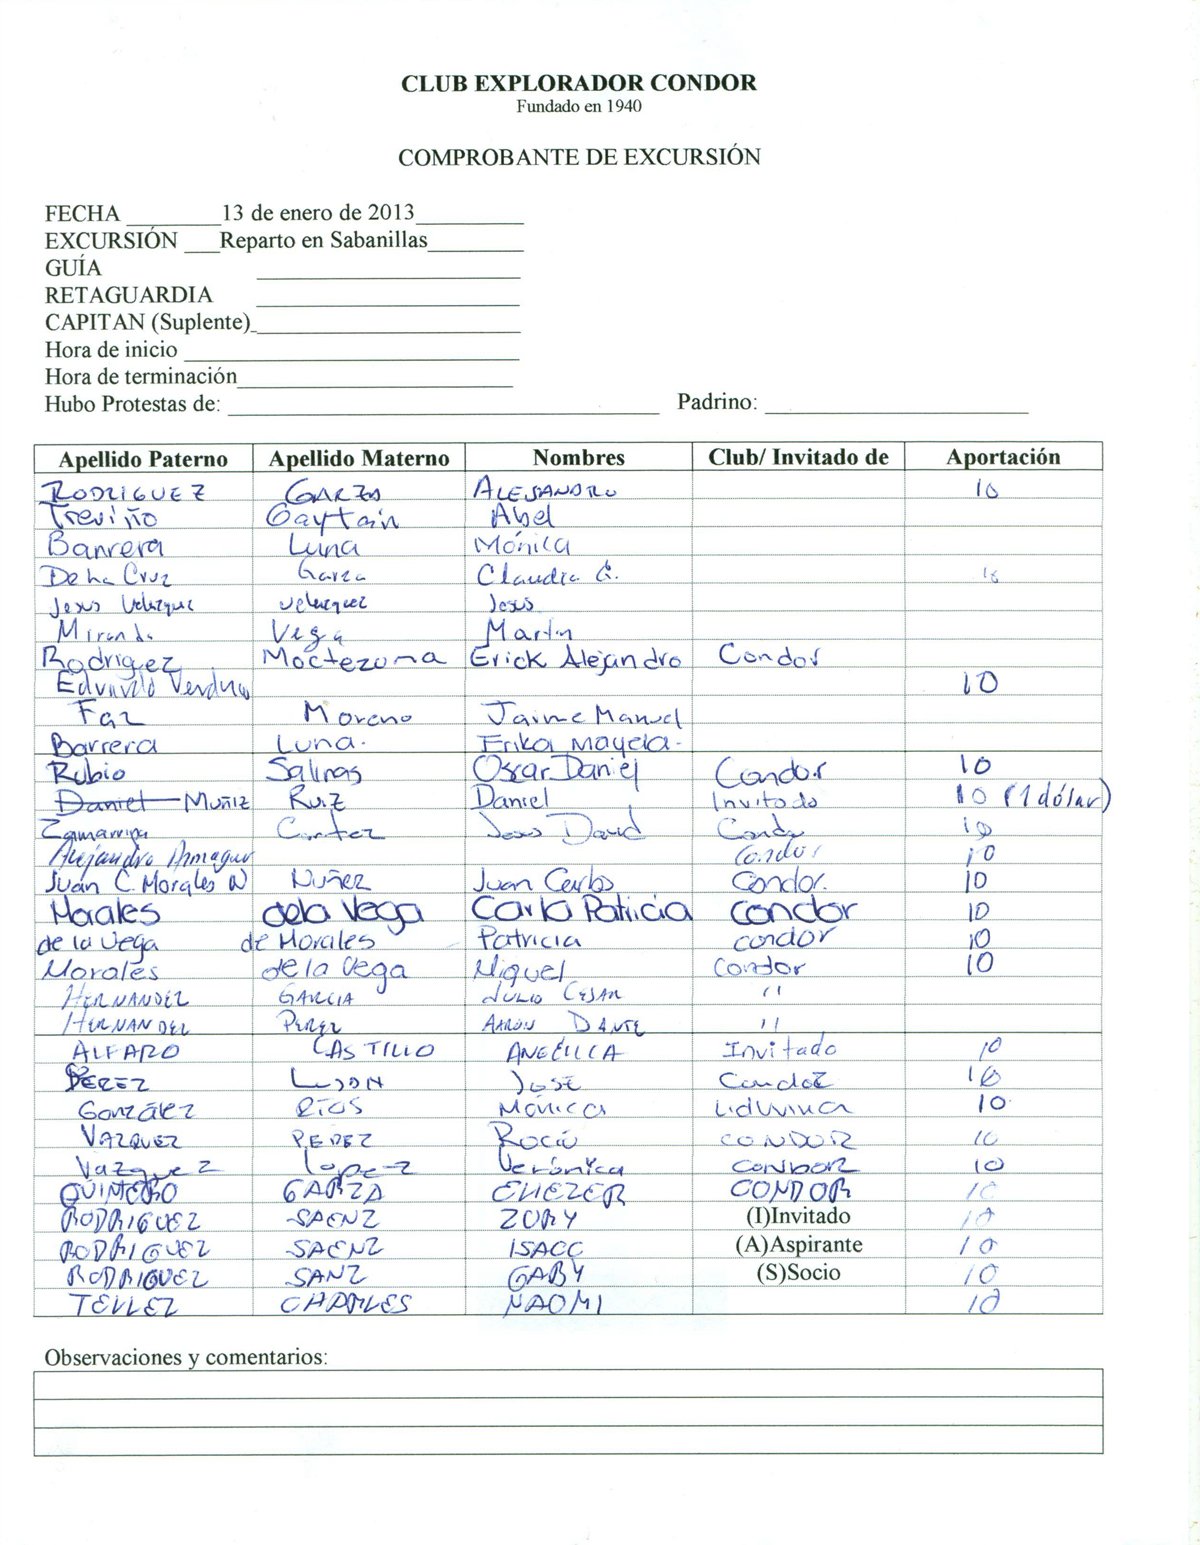 CLUB EXPLORADOR CONDOR
Fundado en 1940
COMPROBANTE DE EXCURSIÓN
FECHA ________13 de enero de 2013_________
EXCURSIÓN ___Reparto en Sabanillas________
GUÍA ______________________
RETAGUARDIA ______________________
CAPITAN (Suplente)_______________________
Hora de inicio ____________________________
Hora de terminación_______________________
Hubo Protestas de: ____________________________________ Padrino: ______________________
Apellido Paterno Apellido Materno Nombres Club/ Invitado de Aportación
RODRIGUEZ GARZA ALEJANDRO 10
Treviño Gaytain Abel
Barrera Luna Mónica
De La Cruz Garza Claudia G. 10
Jesus Velazquez velazquez Jesus
Miranda Vega Martin
Rodrigez Moctezuma Erick Alejandro Condor
Eduardo Verduzco 10
Faz Moreno Jaime Manuel
Barrera Luna. Erika Mayela.
Rubio Salinas Oscar Daniel Condor 10
Daniel MUÑIZ RUIZ Daniel Invitado 10 (1 dólar)
Zamarripa Cortez Jesus David Condor 10
Alejandro Almaguer Condor 10
Juán C. Morales N Nuñez Juan Carlos Condor. 10
Morales de la Vega Carla Patricia condor 10
de la Vega de Morales Patricia condor 10
Morales de la Vega Miguel Condor 10
HERNANDEZ GARCIA JULIO CESAR "
HERNANDEZ PEREZ AARON DANTE "
ALFARO CASTILLO ANGELICA Invitado 10
PEREZ LEON José Condor 10
González RÍOS Mónica Liduvina 10
VAZQUEZ PEREZ Rocío CONDOR 10
Vazquez lopez Verónica CONDOR 10
QUINTERO GARZA ELIEZER CONDOR 10
RODRIGUEZ SAENZ ZURY (I)Invitado 10
RODRIGUEZ SAENZ ISACC (A)Aspirante 10
RODRIGUEZ SANZ GABY (S)Socio 10
TELLEZ CHARLES NAOMI 10
Observaciones y comentarios: